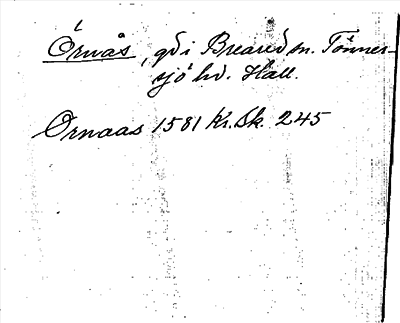 Örnås, gd i Breared sn. Tönner-
sjö hd. Hall.
Ornaas 1581 Kr.Sk. 245